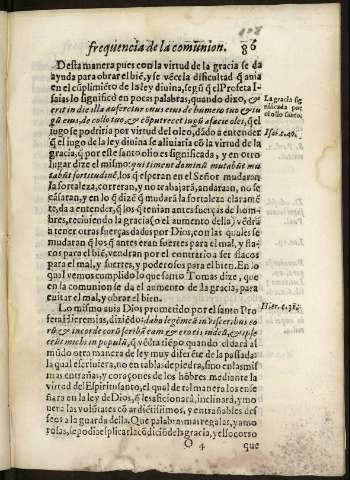 frequencia de la comunion. 86
Desta manera pues con la virtud de la gracia se da
ayuda para obrar el biẽ, y se vẽcela dificultad q̃ auia
en el cũplimiẽto de la ley diuina, segũ q̃ el Profeta I-
saias lo significò en pocas palabras, quando dixo, &
erit in die illa auferetur onus eius de humero tuo & iu-
gũ eius, de collo tuo, & cõputrecet iugũ a facie olei, q̃ el
iugo se podriria por virtud del oleo, dãdo a entender
q̃ el iugo de la ley diuina se aliuiaria cõ la virtud de la
gracia, q̃ por este santo olio es significada, y en otro
lugar dize el mismo: qui timent dominũ mutabũt mu
tabũt fortitudinẽ, los q̃ esperan en el Señor mudaran
la fortaleza, correran, y no trabajarã, andaran, no se
cãsaran, y en lo q̃ dize q̃ mudarã la fortaleza claramẽ
te, da a entender, q̃ los q̃ tenian antes fuerças de hom-
bres, reciuiendo la gracia (o el aumento della) vẽdrã
a tener otras fuerças dadas por Dios, con las quales se
mudaran q̃ los q̃ antes eran fuertes para el mal, y fla-
cos para el bié, vendran por el contrario a ser flacos
para el mal, y fuertes, y poderosos para el bien. En lo
qual vemos cumplido lo que santo Tomas dize, que
en la comunion se da el aumento de la gracia, para
euitar el mal, y obrar el bien.
Lo mismo auia Dios prometido por el santo Pro
feta Hieremias, diziẽdo: dabo legẽ meã in visceribus eo
rũ & in corde eorũ scribã eam & ero eis in deũ, & ipse
erũt michi in populũ, q̃ vẽdra tiẽpo quando el darà al
mũdo otra manera de ley muy diferẽte de la passada
la qual escriuiera, no en tablas de piedra, sino en las mis
mas entrañas, y coraçones de los hõbres mediante la
virtud del Espiritu santo, el qual de tal manera los ense
ñara en la ley de Dios, q̃ les aficionarà, inclinarà, y mo
uera las volũtates cõ ardiẽtissimos, y entrañables des
seos a la guarda della. Que palabras mas regalas, y amo
rosas, se podia explicar la cõdiciõ de la gracia, y el socorso
O 4 que
La gracia sig
nificada por
el olio santo.
Isai. c. 40.
Hier. c. 31.